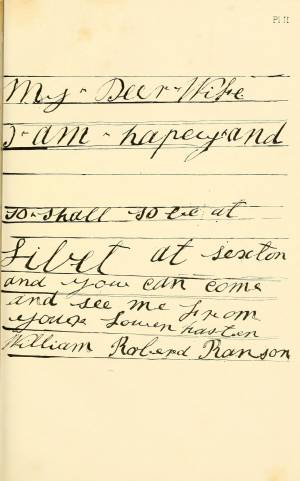 Pl II
My Deer Wife
I am hapey and
so shall so be at
Libet at sexton
and you can come
and see me from
youre Loueen hasben
William Roberd Ranson